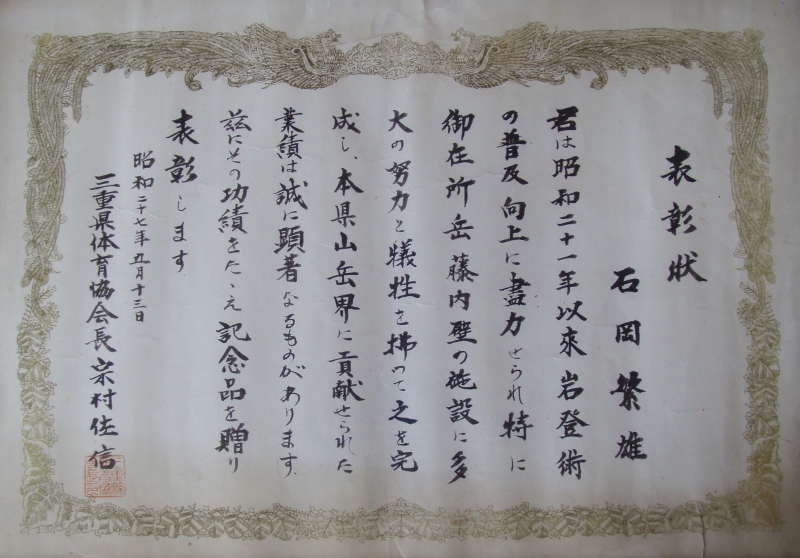 表彰状
石岡繁雄
君は昭和二十一年以来岩登術
の普及向上に盡力せられ特に
御在所岳藤内壁の施設に多
大の努力と犠牲を拂つて之を完
成し、本県山岳界に貢献せられた
業績は誠に顕著なるものがあります.
茲にその功績をたゝえ記念品を贈り
表彰します
昭和二十七年九月十三日
三重県体育協会長宗村佐信